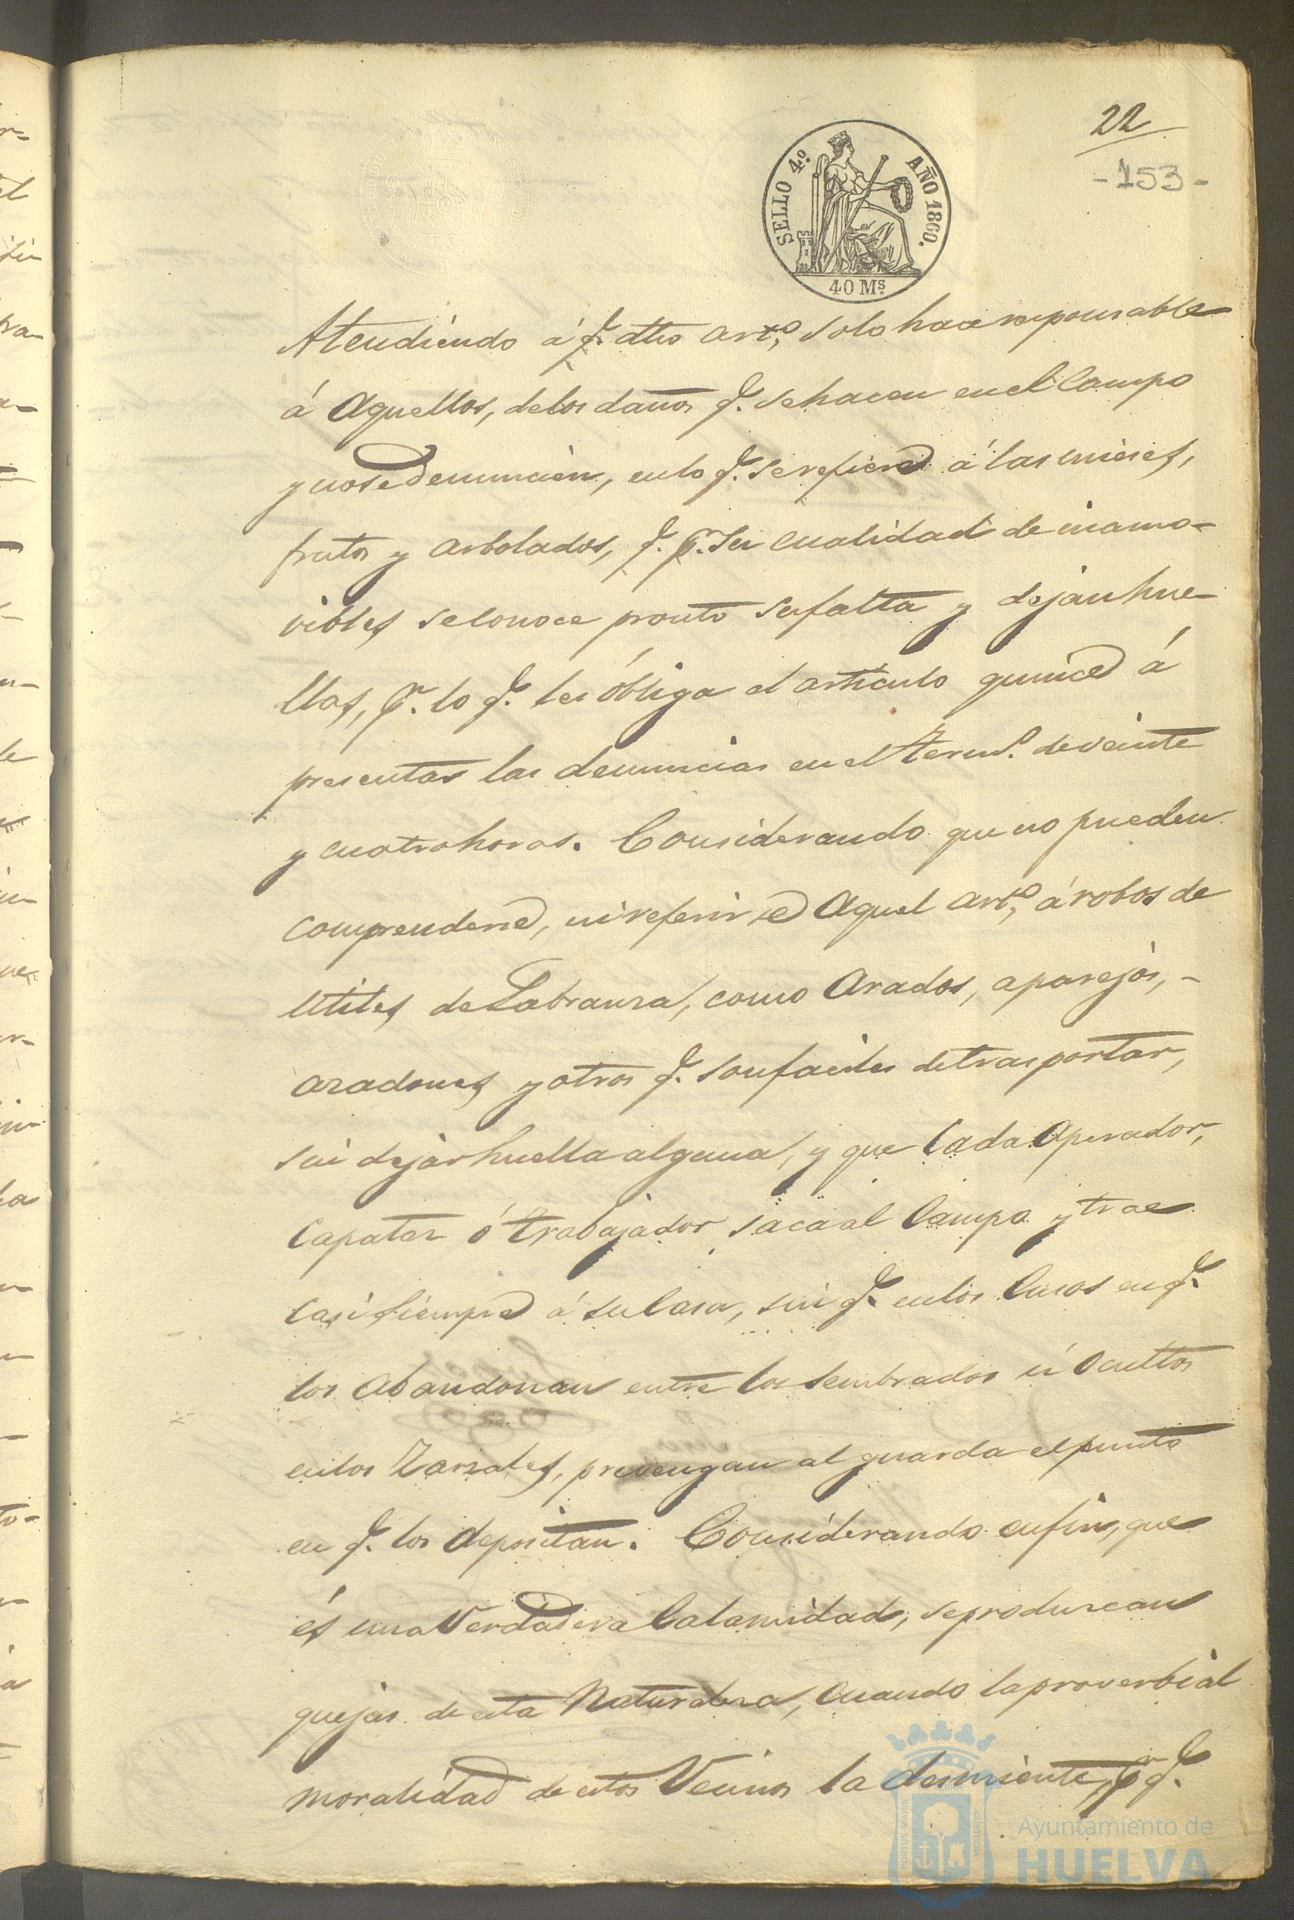 22
-153-
SELLO 4.º AÑO 1860.
40 Ms.
Atendiendo á q.e dho art.º, solo hace responsable
á Aquellos, delos daños q.e sehacen en el Campo
y nose denuncien, en lo q.e serefiere á las mieses,
frutos y arbolados, q.e p.r su cualidad de inamo-
vibles seconoce pronto sufalta y dejan hue-
llas, p.r lo q.e les óbliga el artículo quince á
presentar las denuncias en el term.º de veinte
y cuatro horas. Considerando que no pueden
comprenderse, ni referirse Aquel art.º, á robos de
Utiles de Labranza, como Arados, aparejos, -
azadones y otros q.e son faciles detrasportar,
sin dejar huella alguna, y que Cada Aperador,
Capataz ó trabajador saca al Campo y trae
Casi siempre á su Casa, sin q.e en los Casos en q.e
los abandonan entre los sembrados ú Ocultos
en los Zarzales, prevengan al guarda el punto
en q.e los depositan. Considerando en fin, que
és una Verdadera Calamidad, se produzcan
quejas de esta Naturaleza, Cuando la proverbial
moralidad de estos Vecinos la desmiente, p.r q.e
Ayuntamiento de
HUELVA